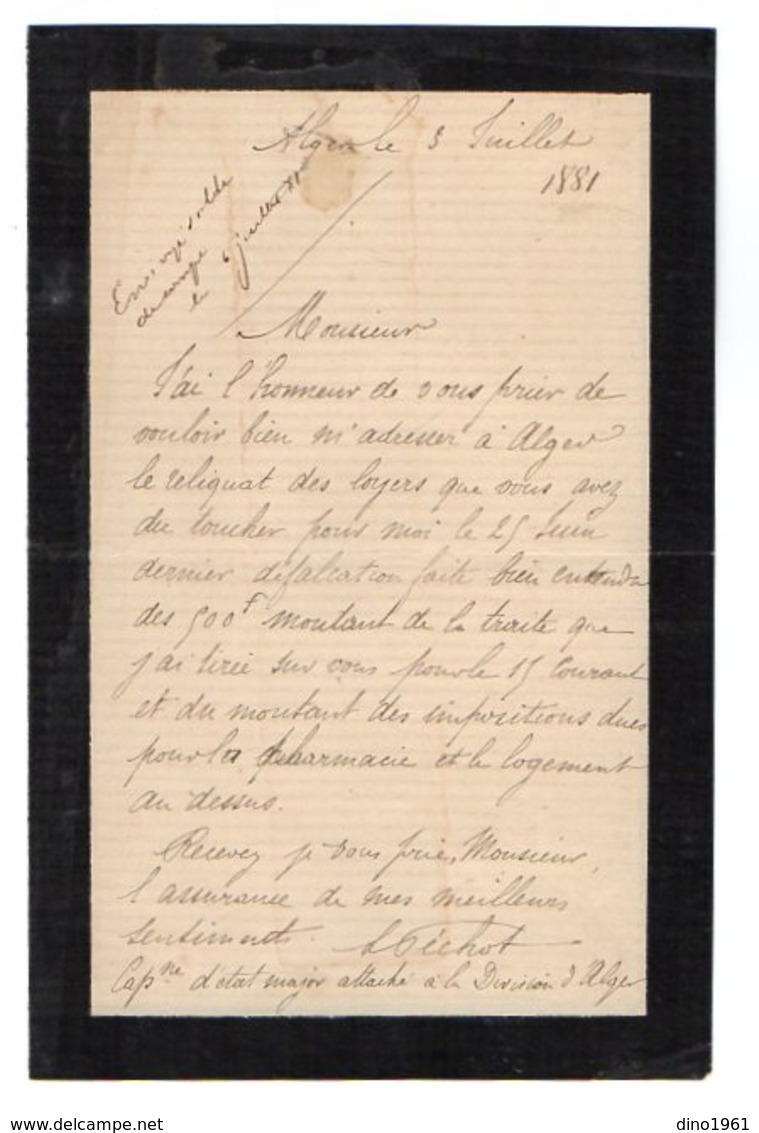 Alger le 3 Juillet
1881
Envoyé solde
de compte
le 6 juillet 81
Monsieur
J'ai l'honneur de vous prier de
vouloir bien m'adresser à Alger
le reliquat des loyers que vous avez
du toucher pour moi le 25 Juin
dernier défalcation faite bien entendu
des 500f montant de la traite que
j'ai tirée sur vous pour le 15 Courant
et du montant des impositions dues
pour la pharmacie et le logement
au dessus.
Recevez je vous prie, Monsieur,
l'assurance de mes meilleurs
sentiments. Péchot
Capne d'état major attaché à la Division d'Alger
dino1961